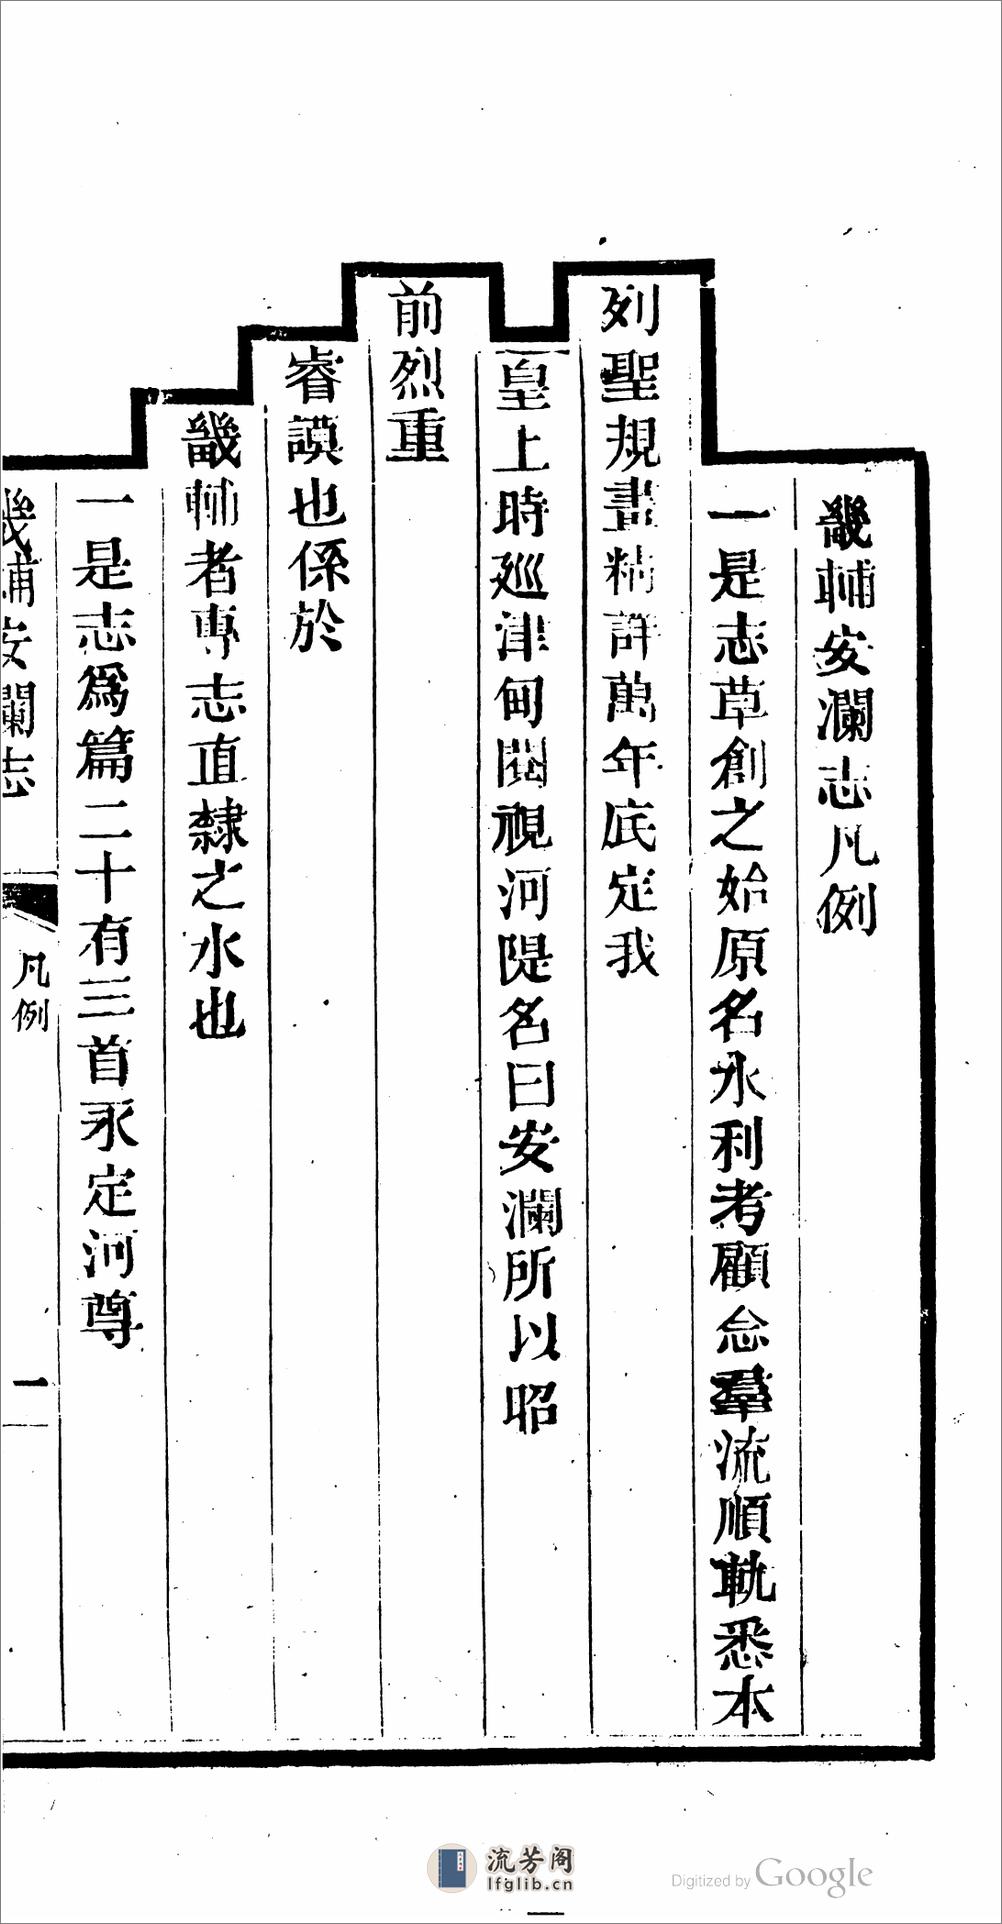 畿輔安瀾志凡例
一是志草創之始原名水利考顧念羣流順軌悉本
列聖規畫精詳萬年底定我
皇上時廵津甸閱視河隄名曰安瀾所以昭
前烈重
睿謨也係於
畿輔者專志直隸之水也
一是志爲篇二十有三首永定河尊
畿輔安瀾志
凡例
一
流芳阁
lfglib.cn
Digitized by Google